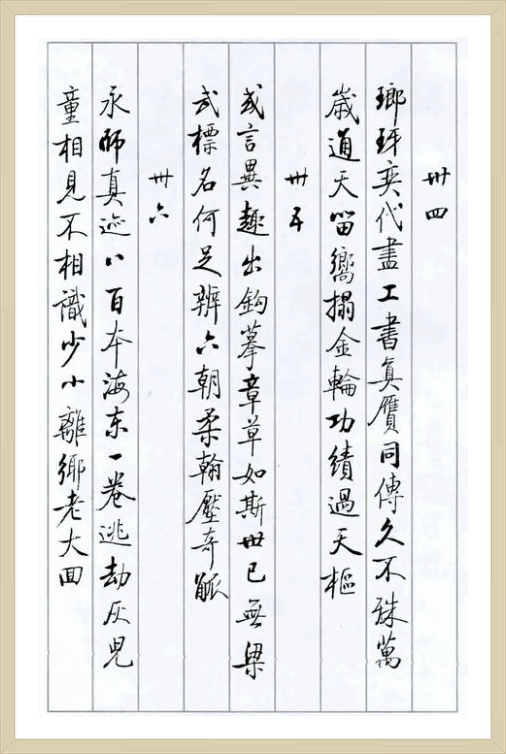 卅四
瑯琊奕代盡工書真贋同傳久不殊萬
歲通天留響搨金輪功績過天樞
卅五
或言異趣出鈎摹章草如斯世已無梁
武標名何足辨六朝柔翰壓奇觚
卅六
永師真迹八百本海东一卷逃劫灰兒
童相見不相識少小離鄉老大回